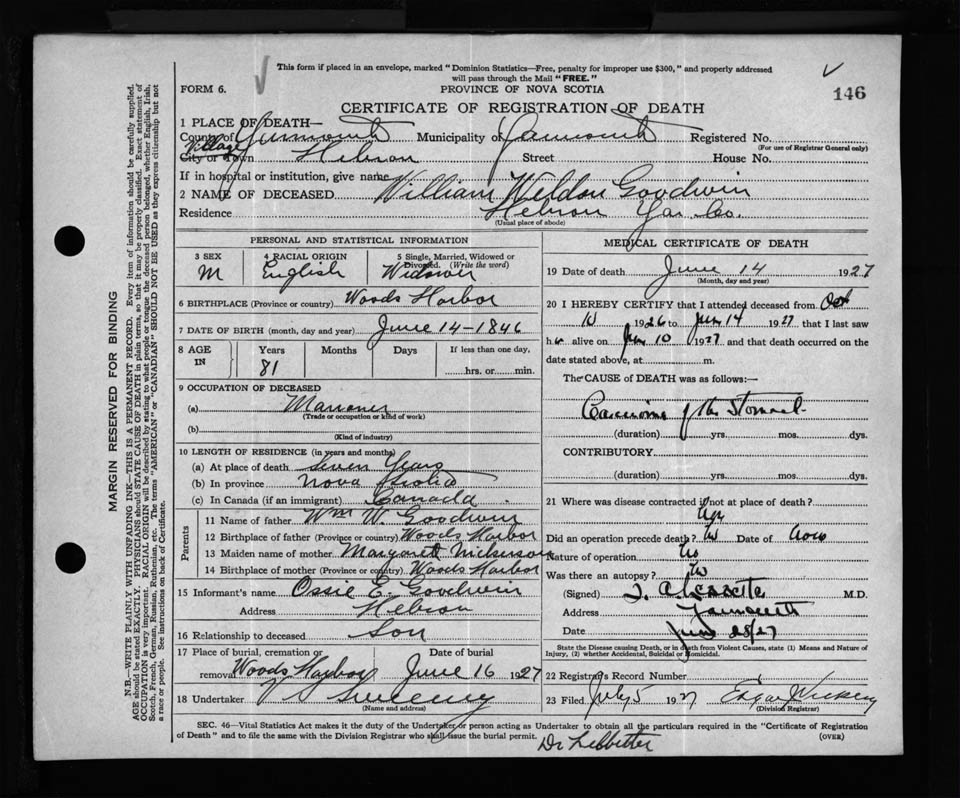 This form if placed in an envelope, marked "Dominion Statistics—Free, penalty for improper use $300," and properly addressed
will pass through the Mail "FREE."
FORM 6.
PROVINCE OF NOVA SCOTIA
146
CERTIFICATE OF REGISTRATION OF DEATH
1 PLACE OF DEATH—
County of Yarmouth Municipality of Yarmouth Registered No.
(For use of Registrar General only)
Village
City or Town Hebron Street House No.
If in hospital or institution, give name
2 NAME OF DECEASED William Weldon Goodwin
Residence Hebron Yar Co.
(Usual place of abode)
PERSONAL AND STATISTICAL INFORMATION
3 SEX 4 RACIAL ORIGIN 5 Single, Married, Widowed or Divorced. (Write the word)
M English Widower
6 BIRTHPLACE (Province or country) Woods Harbor
7 DATE OF BIRTH (month, day and year) June 14-1846
8 AGE IN Years Months Days If less than one day,
81 hrs. or min.
9 OCCUPATION OF DECEASED
(a) Marianer
(Trade or occupation or kind of work)
(b)
(Kind of industry)
10 LENGTH OF RESIDENCE (in years and months)
(a) At place of death Seven Years
(b) In province Nova Scotia
(c) In Canada (if an immigrant) Canada
Parents
11 Name of father Wm W. Goodwin
12 Birthplace of father (Province or country) Woods Harbor
13 Maiden name of mother Margarett Nickerson
14 Birthplace of mother (Province or country) Woods Harbor
15 Informant's name Ossie E. Goodwin
Address Hebron
16 Relationship to deceased Son
17 Place of burial, cremation or Date of burial
removal Woods Harbor June 16 1927
18 Undertaker V Sweeny
(Name and address)
MEDICAL CERTIFICATE OF DEATH
19 Date of death June 14 1927
(Month, day and year)
20 I HEREBY CERTIFY that I attended deceased from Oct
10 1926 to Jun 14 1927 that I last saw
h alive on Jun 10 1927 and that death occurred on the
date stated above, at m.
The CAUSE OF DEATH was as follows:—
Carcinoma of the Stomach
(duration) yrs. mos. dys.
CONTRIBUTORY
(duration) yrs. mos. dys.
21 Where was disease contracted if not at place of death?
Did an operation precede death? No Date of
Nature of operation No
Was there an autopsy? No
(Signed) M.D.
Address Yarmouth
Date June 28/27
State the Disease causing Death, or in death from Violent Causes, state (1) Means and Nature of
Injury, (2) whether Accidental, Suicidal or Homicidal.
22 Registrar's Record Number
23 Filed July 5 1927 Edgar
(Division Registrar)
SEC. 46—Vital Statistics Act makes it the duty of the Undertaker or person acting as Undertaker to obtain all the particulars required in the "Certificate of Registration
of Death" and to file the same with the Division Registrar who shall issue the burial permit.
(OVER)
Dr Lebbetter
MARGIN RESERVED FOR BINDING
N.B.—WRITE PLAINLY WITH UNFADING INK—THIS IS A PERMANENT RECORD. Every item of information should be carefully supplied.
AGE should be stated EXACTLY. PHYSICIANS should STATE CAUSE OF DEATH in plain terms, so that it may be properly classified. Exact statement of
OCCUPATION is very important. RACIAL ORIGIN will be described by stating to what people or tongue the deceased person belonged, whether English, Irish,
Scotch, French, German, Russian, Ruthenian, etc. The terms "AMERICAN" or "CANADIAN" SHOULD NOT BE USED as they express citizenship but not
a race or people. See instructions on back of Certificate.